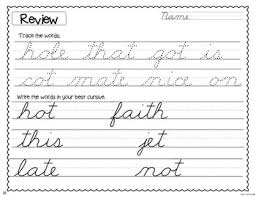 Review
Name
Trace the words.
hole that got is
cot mate nice on
Write the words in your best cursive.
hot faith
this jet
late not